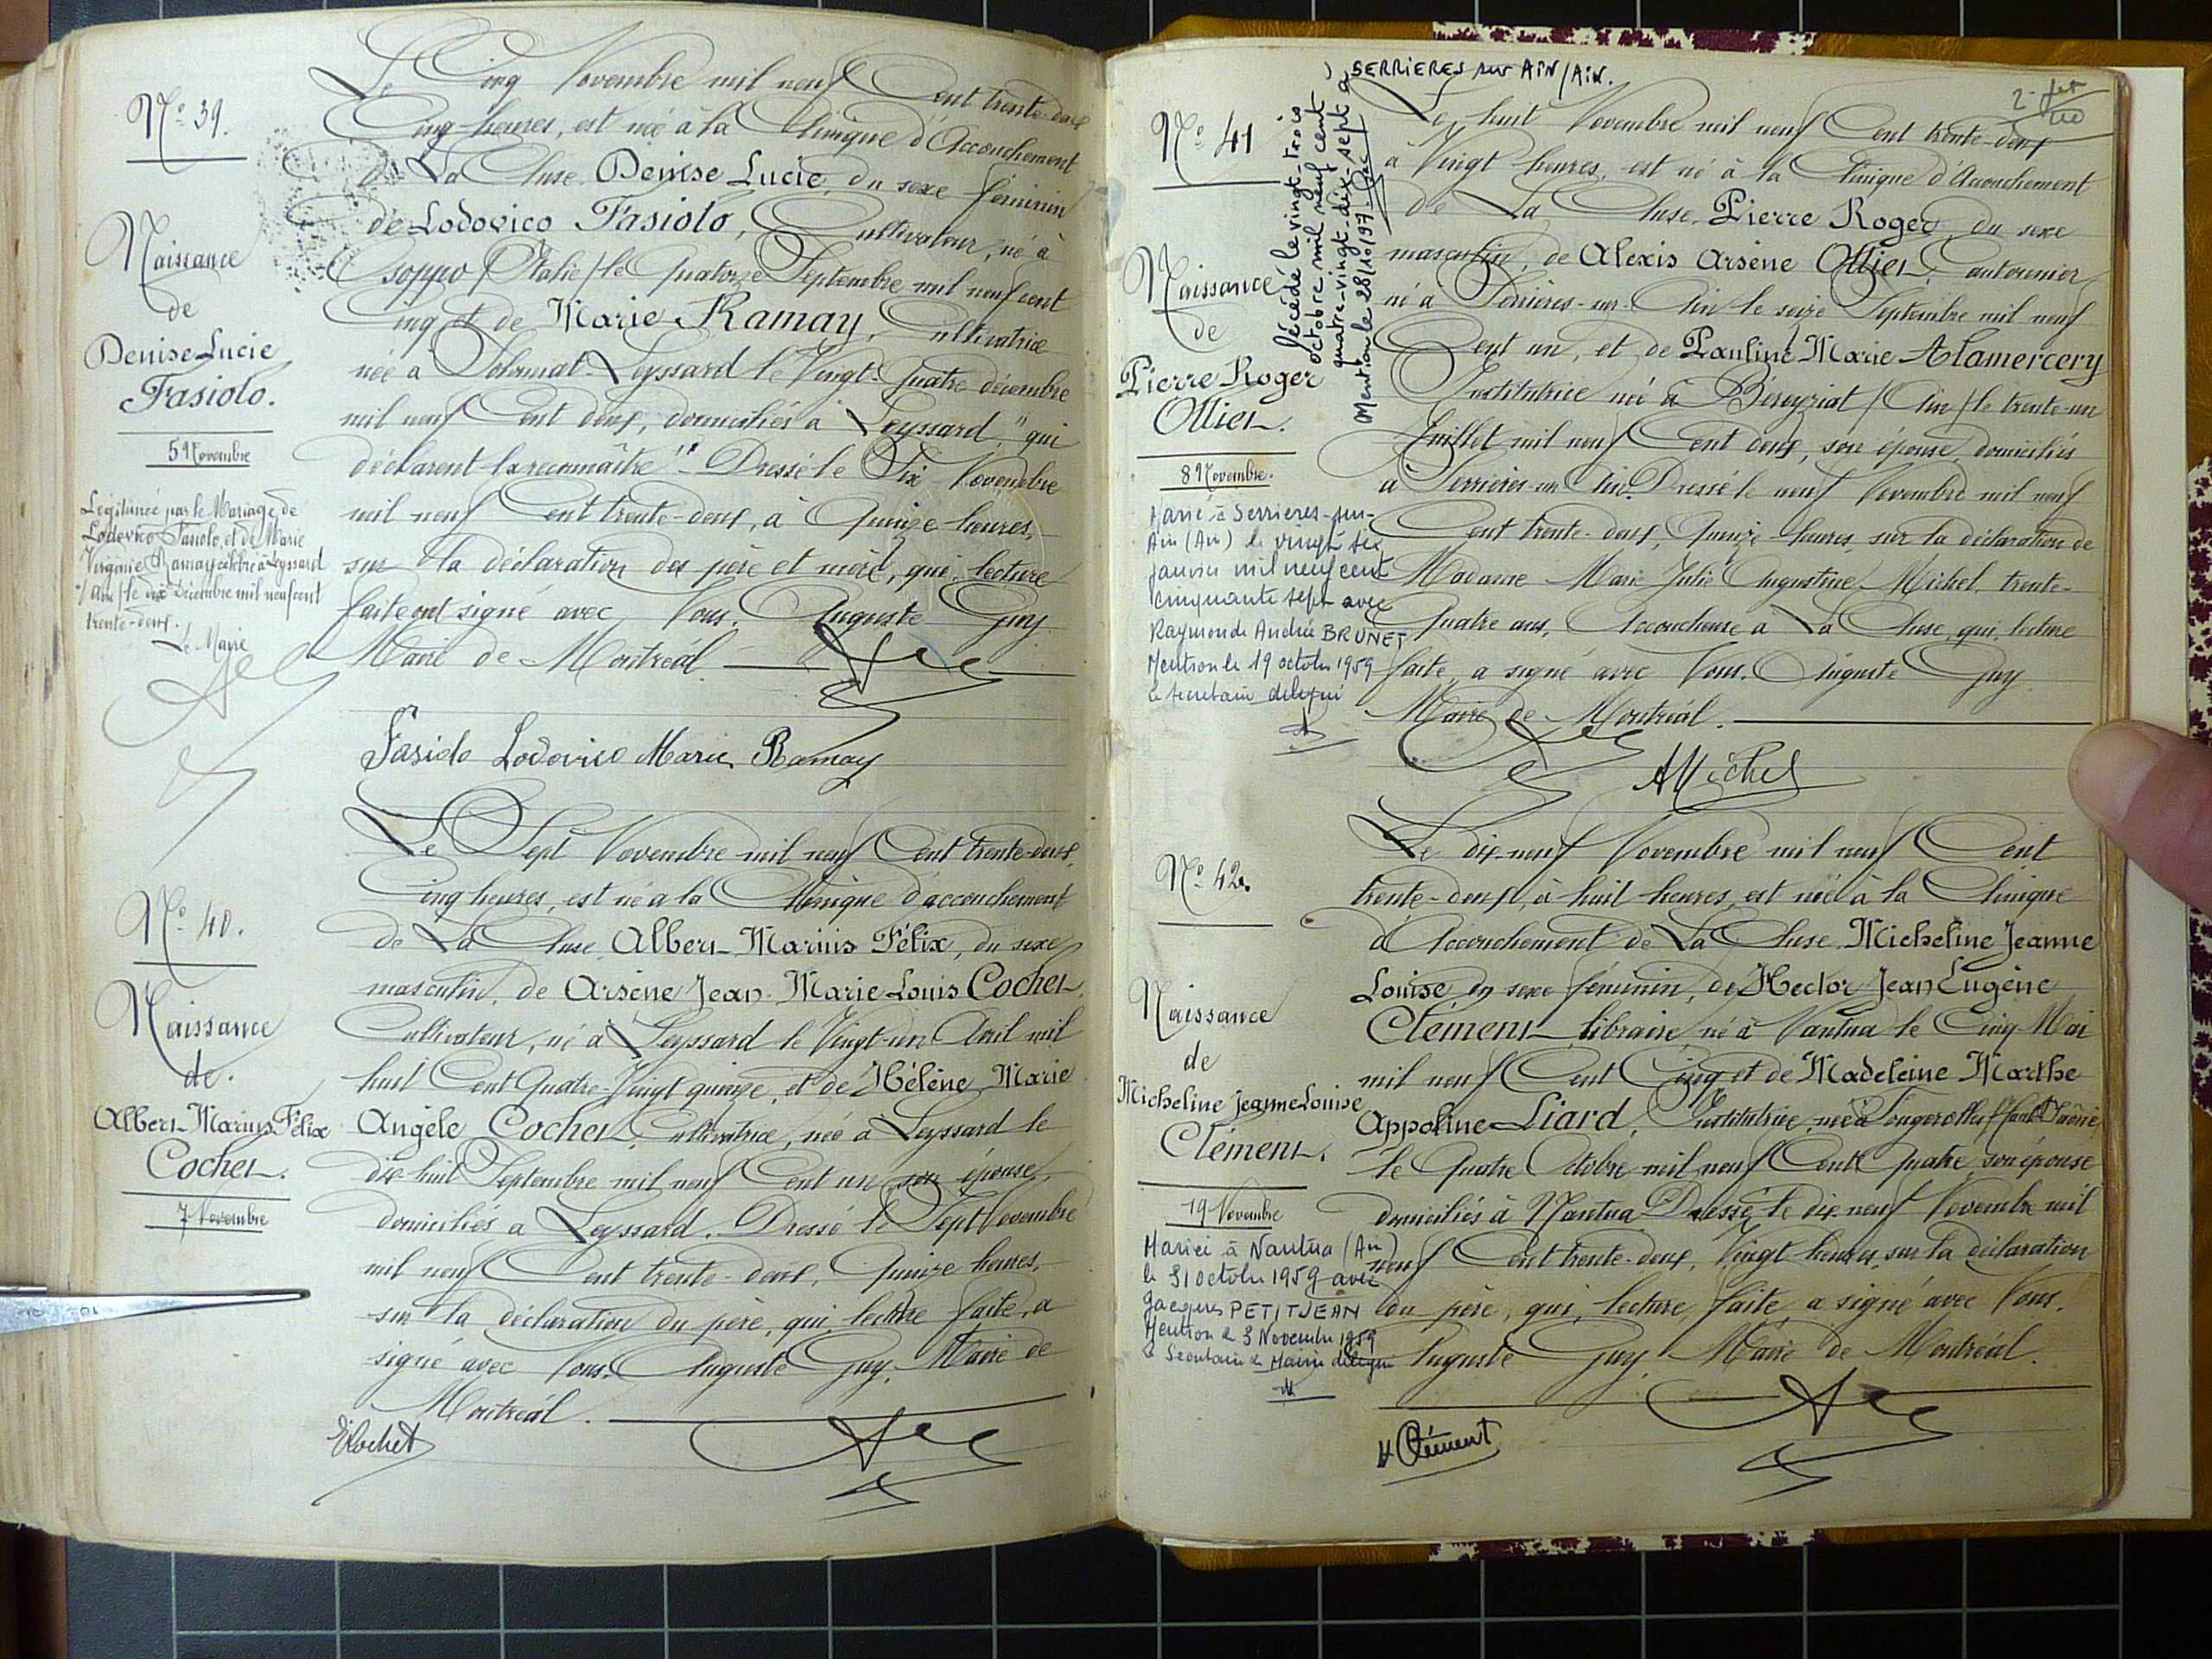 N° 39.
Naissance
de
Denise Lucie
Fasiolo.
5 Novembre
Légitimée par le Mariage de
Lodovico Fasiolo, et de Marie
Virginie Ramay célébré à Leyssard
/Ain/ le dix Décembre mil neuf cent
trente-deux.
Le Maire
Le Cinq Novembre mil neuf Cent trente-deux
Cinq heures, est née à la Clinique d'Accouchement
de La Cluse Denise Lucie, du sexe féminin
de Lodovico Fasiolo, Cultivateur, né à
Osoppo /Italie/ le Quatorze Septembre mil neuf cent
cinq et de Marie Ramay, Cultivatrice
née à Solomiat-Leyssard le Vingt-Quatre décembre
mil neuf Cent deux, domiciliés à Leyssard, "qui
déclarent la reconnaître". Dressé le Six Novembre
mil neuf Cent trente-deux, à Quinze heures,
sur la déclaration des père et mère, qui, lecture
faite ont signé avec Nous. Auguste Guy
Maire de Montréal
Fasiolo Lodovico Marie Ramay
N° 40.
Naissance
de.
Albert Marius Félix
Cochet.
7 Novembre
Le Sept Novembre mil neuf Cent trente-deux,
Cinq heures, est né à la Clinique d'accouchement
de La Cluse Albert Marius Félix, du sexe
masculin, de Arsène Jean-Marie Louis Cochet,
Cultivateur, né à Leyssard le Vingt-un Avril mil
huit Cent Quatre-Vingt quinze, et de Hélène Marie
Angèle Cochet, Cultivatrice, née à Leyssard le
dix-huit Septembre mil neuf Cent un son épouse,
domiciliés à Leyssard. Dressé le Sept Novembre
mil neuf Cent trente-deux, Quinze heures,
sur la déclaration du père, qui, lecture faite, a
signé avec Nous. Auguste Guy, Maire de
Montréal.
Cochet
N° 41
Naissance
de
Pierre Roger
Ollier.
8 Novembre.
Marié à Serrières-sur-
Ain (Ain) le vingt six
janvier mil neuf cent
cinquante sept avec
Raymonde Andrée BRUNET
Mention le 19 octobre 1959
le Secrétaire délégué
Décédé le vingt-trois
octobre mil neuf cent
quatre-vingt-dix sept à
SERRIERES sur AIN/AIN.
Mention le 28/10/97
Le huit Novembre mil neuf Cent trente-deux
à Vingt heures, est né à la Clinique d'Accouchement
de La Cluse Pierre Roger, du sexe
masculin, de Alexis Arsène Ollier, Cantonnier
né à Serrières-sur-Ain le seize Septembre mil neuf
Cent un, et de Pauline Marie Alamercery
Institutrice née à Béreyziat /Ain/ le trente-un
Juillet mil neuf Cent deux, son épouse, domiciliés
à Serrières-sur-Ain. Dressé le neuf Novembre mil neuf
Cent trente-deux, Quinze heures, sur la déclaration de
Madame Marie Julie Augustine Michel, trente-
Quatre ans, Accoucheuse à La Cluse, qui, lecture
faite, a signé avec Nous. Auguste Guy
Maire de Montréal.
AMichel
N° 42.
Naissance
de
Micheline Jeanne Louise
Clément.
19 Novembre
Mariée à Nantua (Ain)
le 31 octobre 1959 avec
Jacques PETITJEAN
Mention le 3 Novembre 1959
le Secrétaire de Mairie délégué
Le dix-neuf Novembre mil neuf Cent
trente-deux, à huit heures, est née à la Clinique
d'Accouchement de La Cluse Micheline Jeanne
Louise du sexe féminin, de Hector Jean Eugène
Clément, libraire, né à Nantua le Cinq Mai
mil neuf Cent Cinq et de Madeleine Marthe
Appoline Liard, Institutrice, née à Fougerolles /Haute Saône/
le Quatre Octobre mil neuf Cent Quatre, son épouse
domiciliés à Nantua Dressé le dix neuf Novembre mil
neuf Cent trente-deux, Vingt heures, sur la déclaration
du père, qui, lecture faite, a signé avec Nous.
Auguste Guy, Maire de Montréal.
H Clément